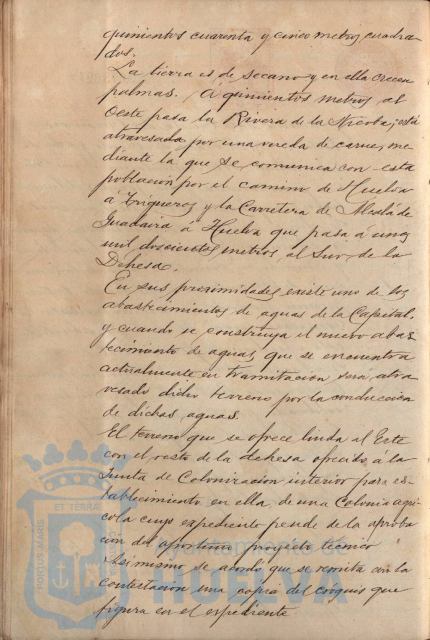 quinientos cuarenta y cinco metros cuadra-
dos.
La tierra es de secano y en ella crecen
palmas. A quinientos metros al
Oeste pasa la Rivera de la Nicoba; está
atravesada por una vereda de carne, me-
diante la que se comunica con esta
población por el camino de Huelva
á Trigueros y la Carretera de Alcalá de
Guadaira á Huelva que pasa á unos
mil doscientos metros al Sur de la
Dehesa.
En sus proximidades existe uno de los
abastecimientos de aguas de la Capital,
y cuando se construya el nuevo abas-
tecimiento de aguas que se encuentra
actualmente en tramitación será atra-
vesado dicho terreno por la conducción
de dichas aguas.
El terreno que se ofrece linda al Este
con el resto de la dehesa ofrecida á la
Junta de Colonización interior para es-
tablecimiento en ella de una Colonia agri-
cola cuyo expediente pende de la aproba
ción del oportuno proyecto técnico
Asimismo se acordó que se remita con la
contestación una copia del croquis que
figura en el expediente
PORTUS MARIS ET TERRAE
HUELVA